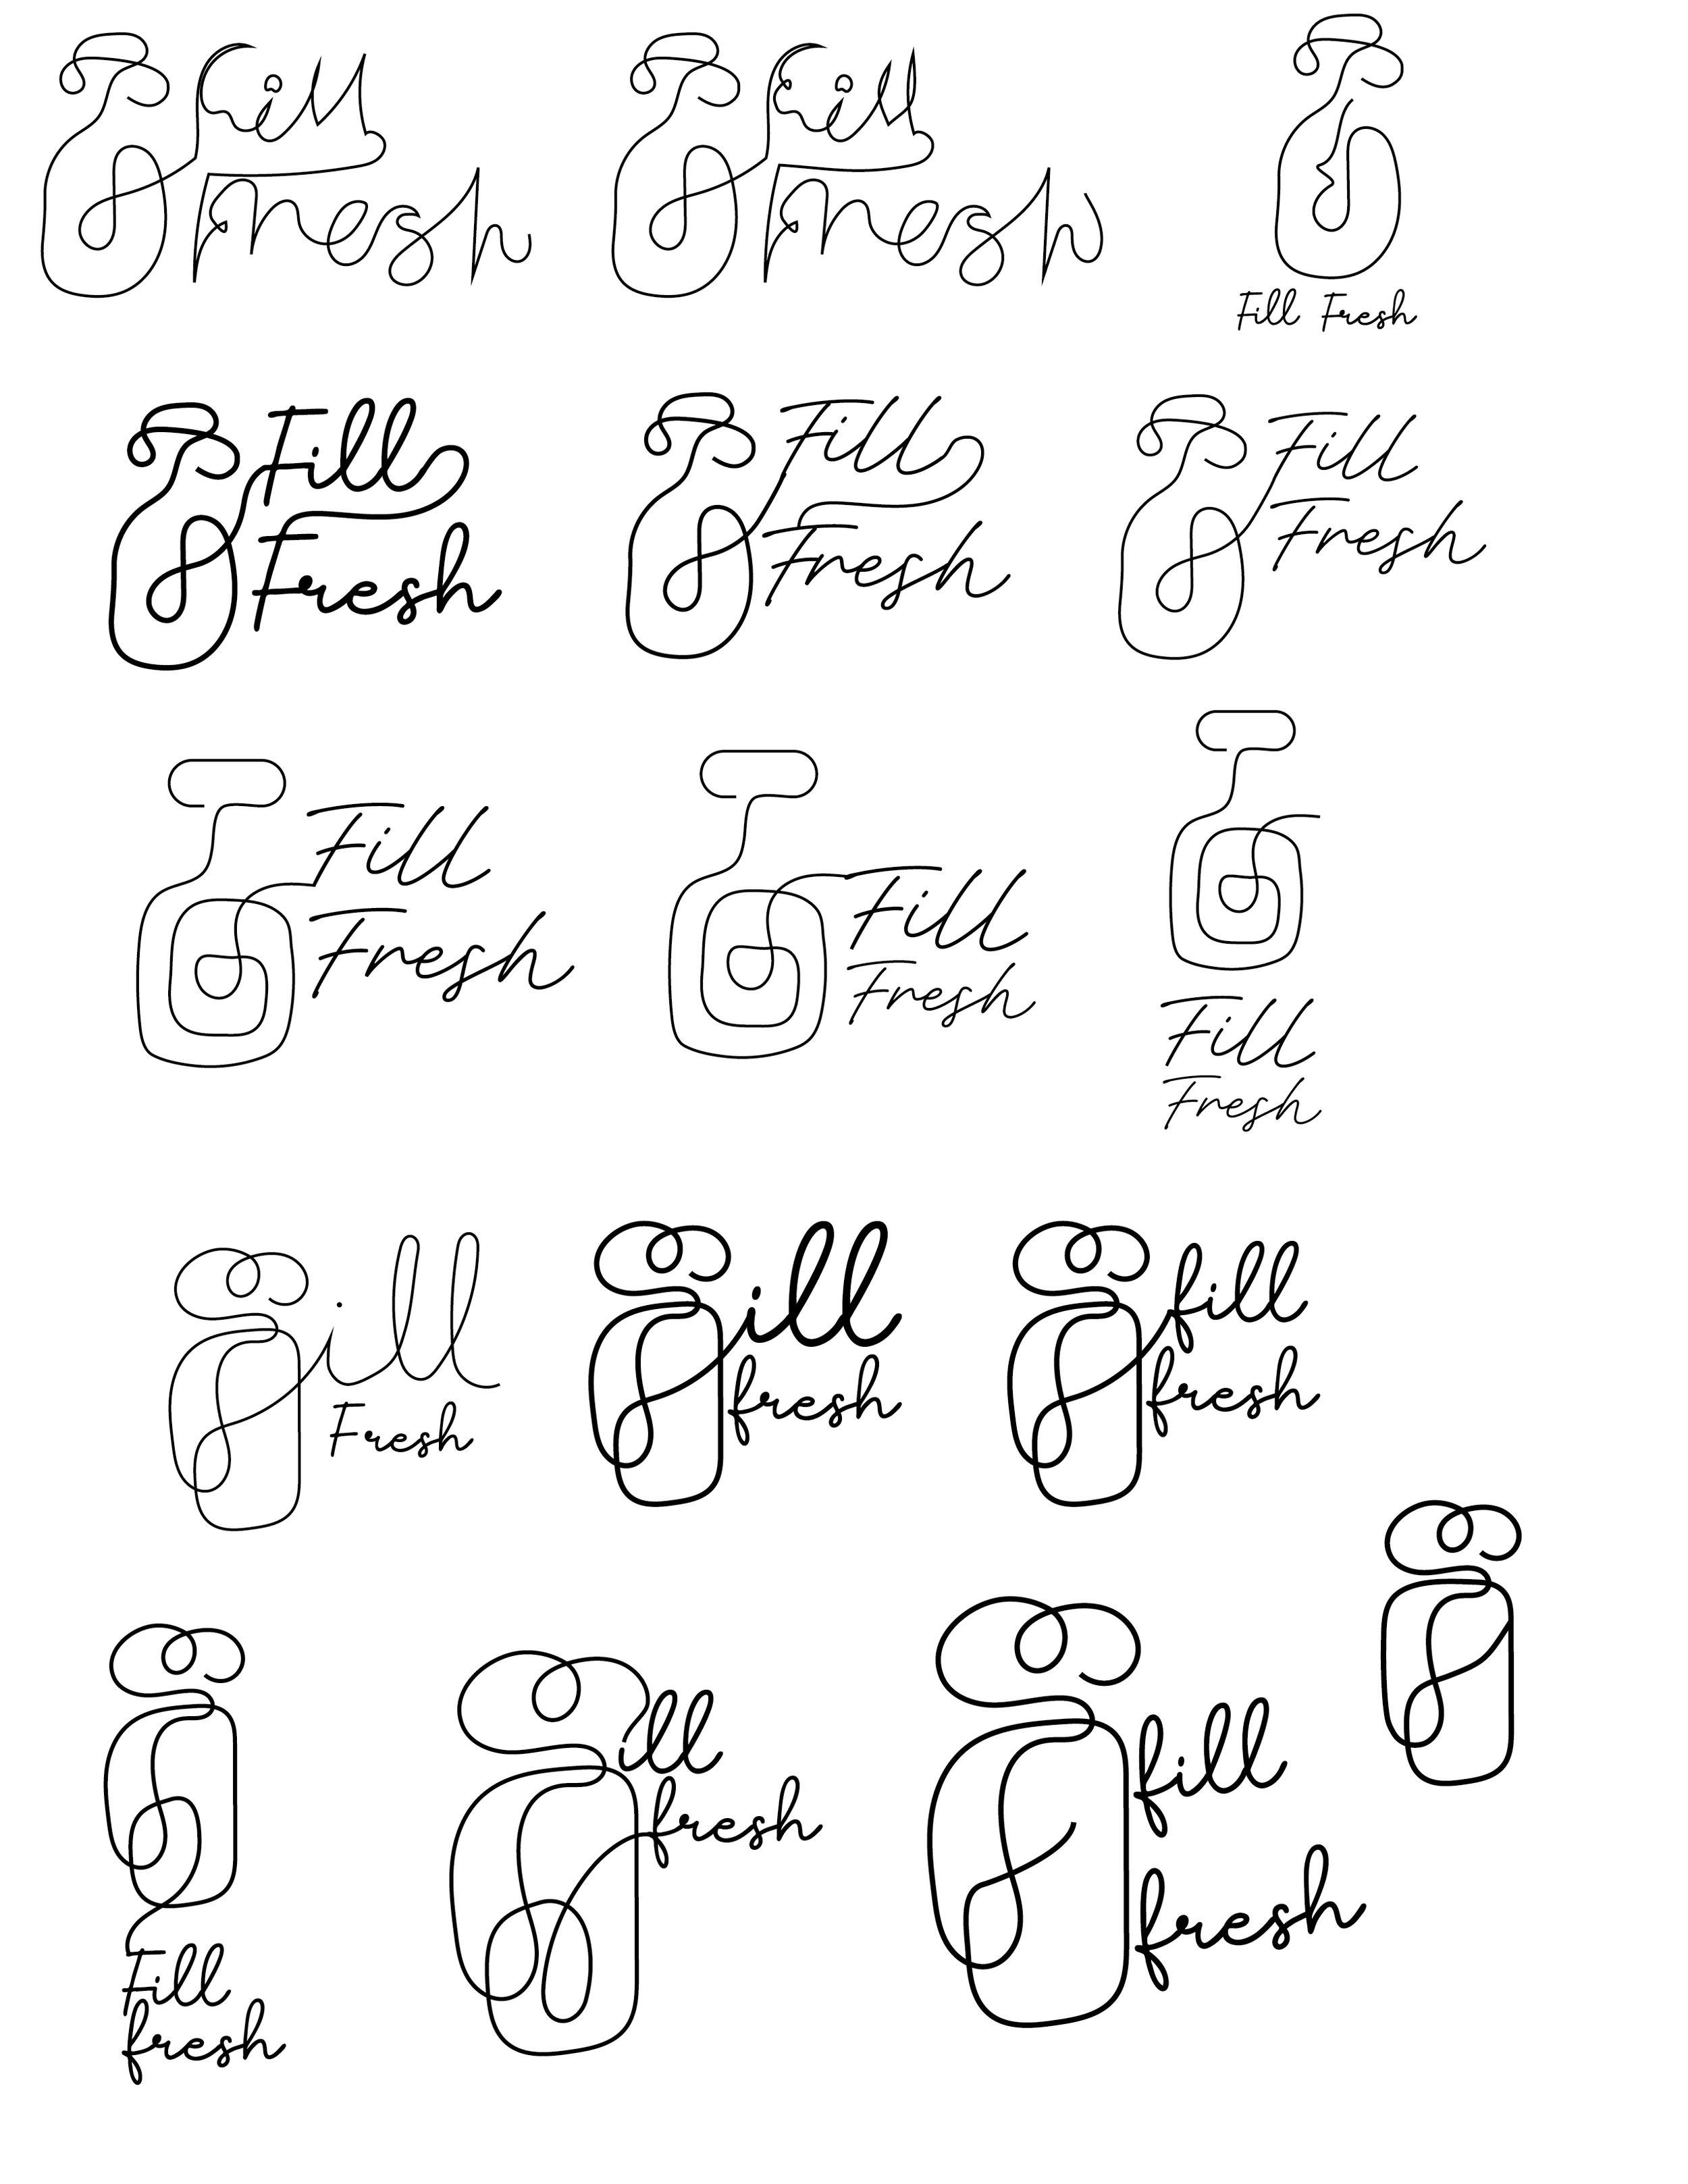 Fill
Fresh
Fill
Fresh
Fill Fresh
Fill
Fresh
Fill
Fresh
Fill
Fresh
Fill
Fresh
Fill
Fresh
Fill
Fresh
ill
Fresh
ill
fresh
fill
fresh
Fill
fresh
ill
fresh
fill
fresh